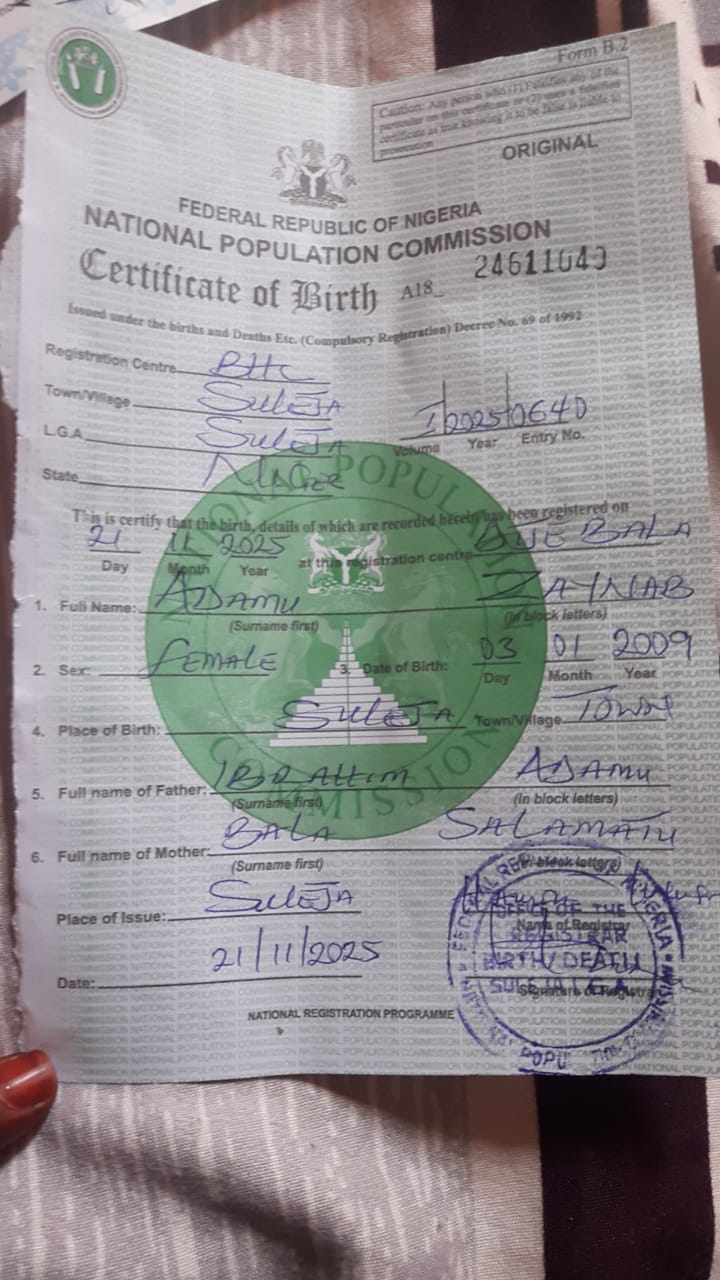 Form B.2
Caution: Any person who (1) Falsifies any of the
particular on this certificate or (2) uses a falsified
certificate as true knowing it to be false is liable to
prosecution
ORIGINAL
FEDERAL REPUBLIC OF NIGERIA
NATIONAL POPULATION COMMISSION
Certificate of Birth A18_ 24611040
Issued under the births and Deaths Etc. (Compulsory Registration) Decree No. 69 of 1992
Registration Centre BHC
Town/Village SULEJA
L.G.A. SULEJA
I 2025 0640
Volume Year Entry No.
State NIGER
This is certify that the birth, details of which are recorded herein has been registered on
21 11 2025 at this registration centre BALA
Day Month Year
1. Full Name: ADAMU ZAYNAB
(Surname first) (In block letters)
2. Sex: FEMALE 3. Date of Birth: 03 01 2009
Day Month Year
4. Place of Birth: SULEJA Town/Village TOWN
5. Full name of Father: IBRAHIM ADAMU
(Surname first) (In block letters)
6. Full name of Mother: BALA SALAMATU
(Surname first) (In block letters)
Place of Issue: SULEJA
Name of Registrar
Date: 21/11/2025
Signature of Registrar
OFFICE OF THE
REGISTRAR
BIRTH/DEATH
SULEJA L.G.A
NATIONAL REGISTRATION PROGRAMME
NATIONAL POPULATION COMMISSION